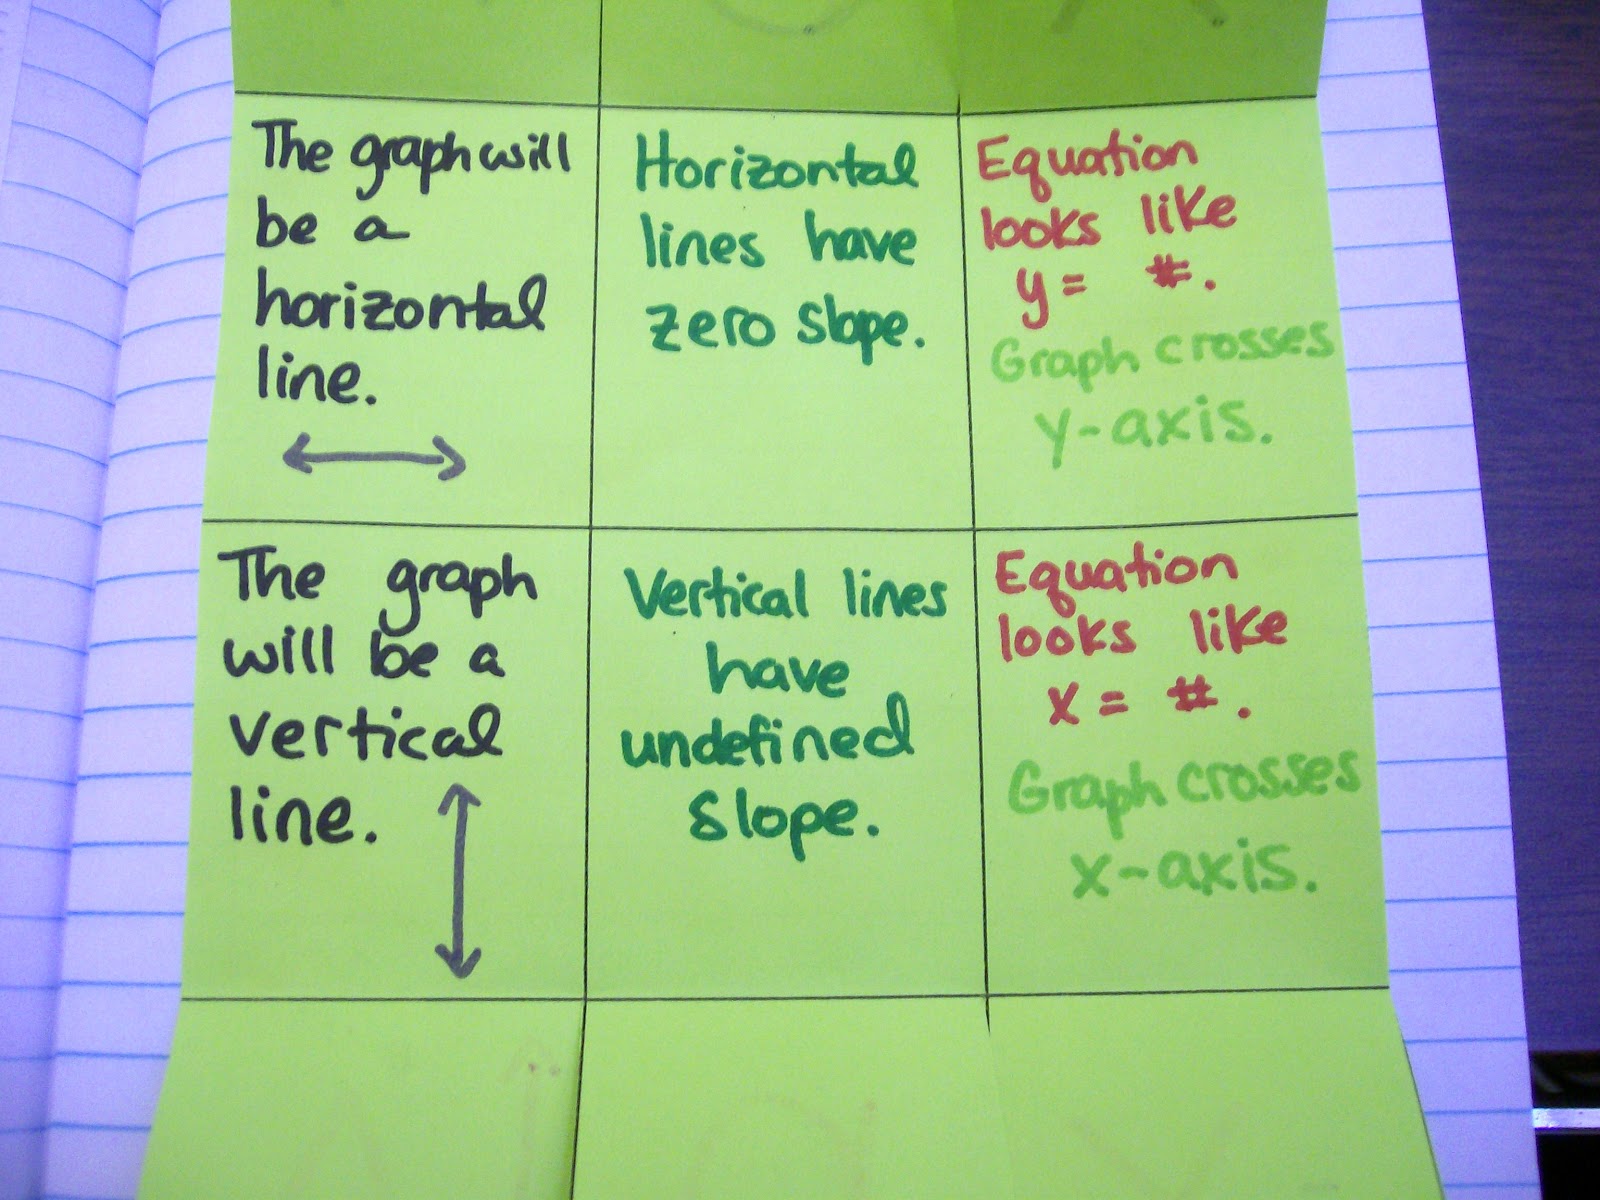 The graph will
be a
horizontal
line.
Horizontal
lines have
zero slope.
Equation
looks like
y = #.
Graph crosses
y-axis.
The graph
will be a
vertical
line.
Vertical lines
have
undefined
slope.
Equation
looks like
x = #.
Graph crosses
x-axis.